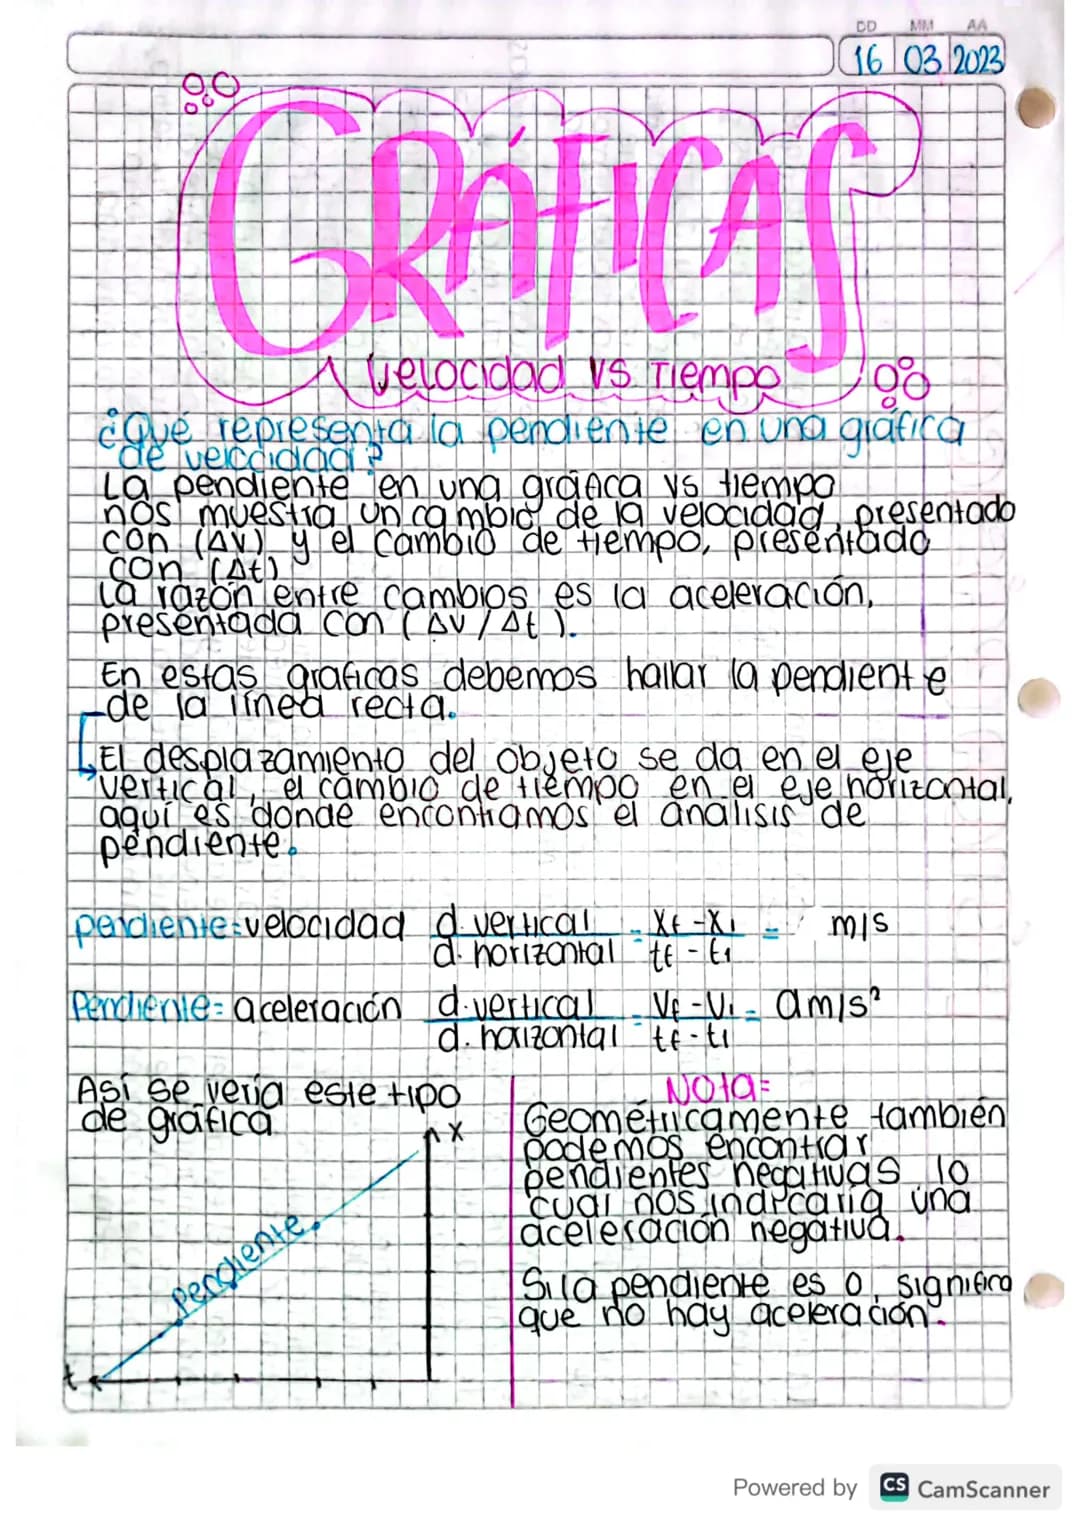 DD MM AA
16 03 2023
GRÁFICAS
Velocidad vs Tiempo
¿Qué representa la pendiente en una gráfica
de velocidad?
La pendiente en una gráfica vs tiempo
nos muestra un cambio de la velocidad, presentado
con (ΔV) y el cambio de tiempo, presentado
con (Δt)
La razón entre cambios es la aceleración,
presentada con (ΔV/Δt).
En estas graficas debemos hallar la pendiente
de la línea recta.
El desplazamiento del objeto se da en el eje
vertical, el cambio de tiempo en el eje horizontal,
aquí es donde encontramos el análisis de
pendiente.
pendiente=velocidad d. vertical = Xf - X1 = m/s
d. horizontal tf - t1
Pendiente= aceleración d. vertical = Vf - V1 = a m/s²
d. horizontal tf - t1
Así se vería este tipo
de gráfica
X
Pendiente
t
Nota=
Geométricamente también
podemos encontrar
pendientes negativas lo
cual nos indicaría una
aceleración negativa.
Si la pendiente es 0, significa
que no hay aceleración.
Powered by CS CamScanner